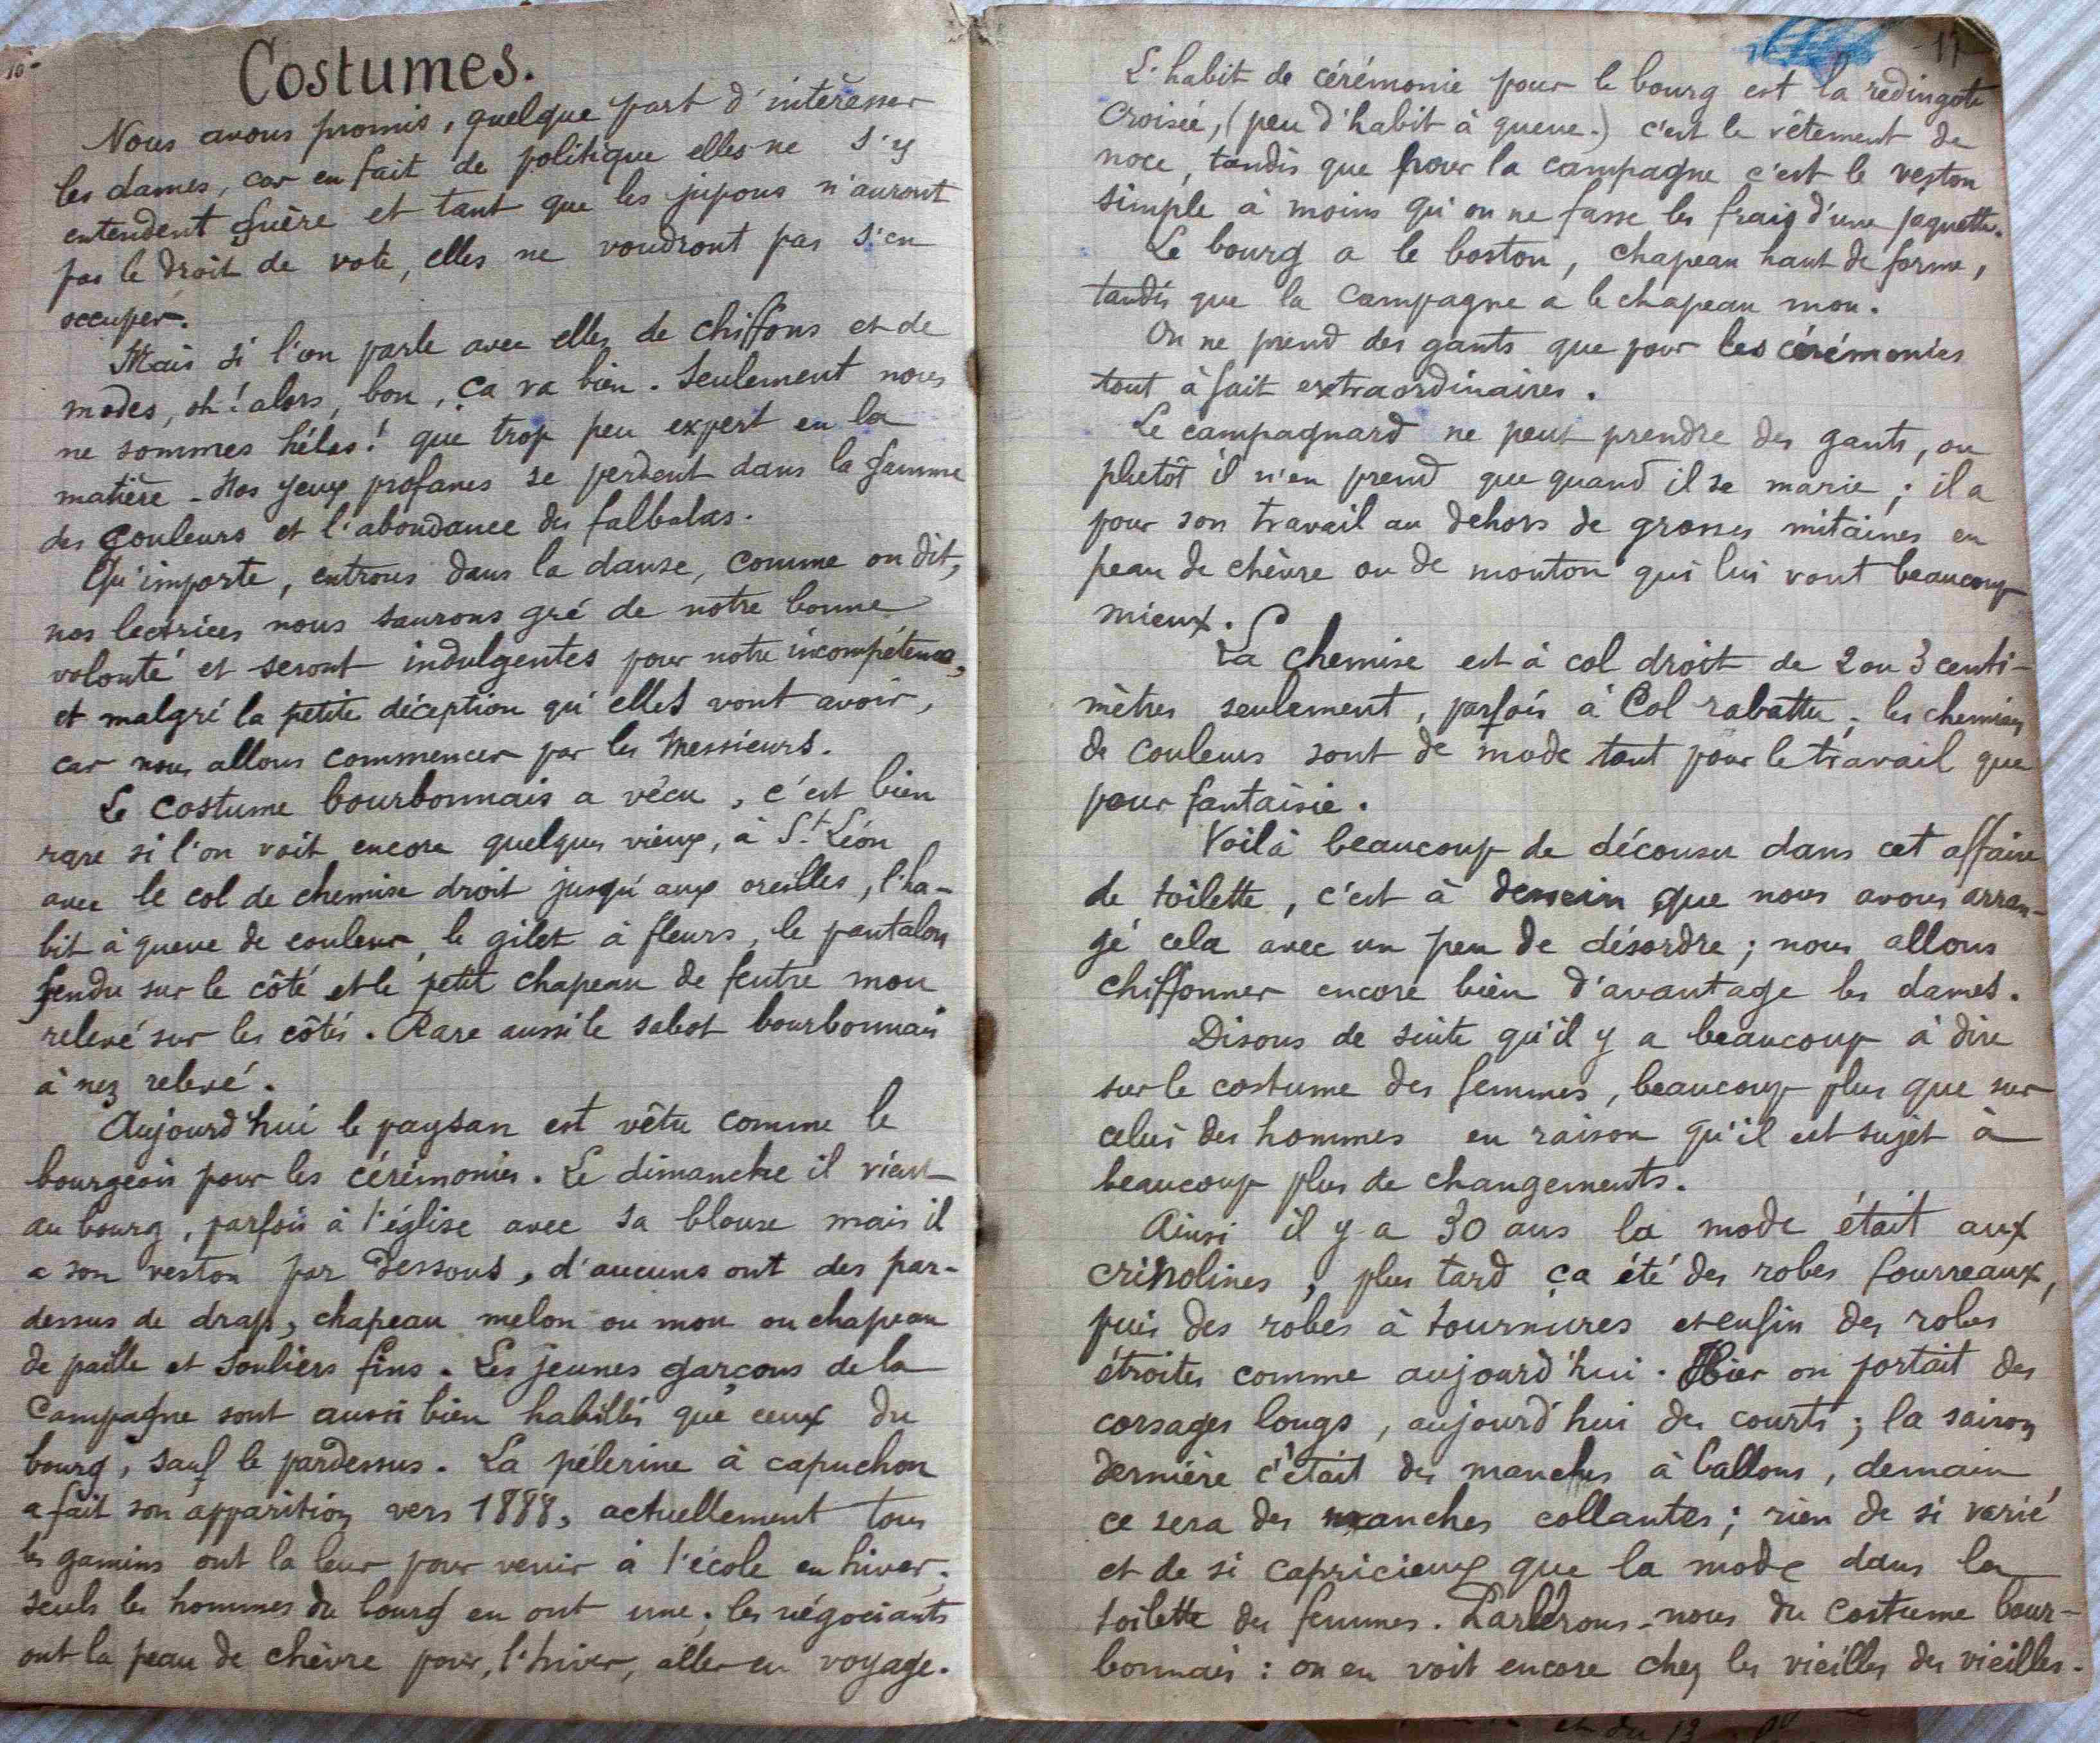 16-
Costumes.
Nous avons promis, quelque part d'intéresser
les dames, car en fait de politique elles ne s'y
entendent guère et tant que les jupons n'auront
pas le droit de vote, elles ne voudront pas s'en
occuper.
Mais si l'on parle avec elles de chiffons et de
modes, oh! alors, bon, ça va bien. Seulement nous
ne sommes hélas! que trop peu expert en la
matière - Nos yeux profanes se perdent dans la gamme
des couleurs et l'abondance des falbalas.
Qu'importe, entrons dans la danse, comme on dit,
nos lectrices nous saurons gré de notre bonne
volonté et seront indulgentes pour notre incompétence,
et malgré la petite déception qu'elles vont avoir,
car nous allons commencer par les Messieurs.
Le costume bourbonnais a vécu, c'est bien
rare si l'on voit encore quelques vieux, à St. Léon
avec le col de chemise droit jusqu'aux oreilles, l'ha-
bit à queue de couleur, le gilet à fleurs, le pantalon
fendu sur le côté et le petit chapeau de feutre mou
relevé sur les côtés. Rare aussi le sabot bourbonnais
à nez relevé.
Aujourd'hui le paysan est vêtu comme le
bourgeois pour les cérémonies. Le dimanche il vient
au bourg, parfois à l'église avec sa blouse mais il
a son veston par dessous, d'aucuns ont des par-
dessus de drap, chapeau melon ou mou ou chapeau
de paille et souliers fins. Les jeunes garçons de la
campagne sont aussi bien habillés que ceux du
bourg, sauf le pardessus. La pélerine à capuchon
a fait son apparition vers 1888, actuellement tous
les gamins ont la leur pour venir à l'école en hiver;
seuls les hommes du bourg en ont une; les négociants
ont la peau de chèvre pour, l'hiver, aller en voyage.
-17-
L'habit de cérémonie pour le bourg est la redingote
croisée, (peu d'habit à queue.) c'est le vêtement de
noce, tandis que pour la campagne c'est le veston
simple à moins qu'on ne fasse les frais d'une jaquette.
Le bourg a le boston, chapeau haut de forme,
tandis que la campagne a le chapeau mou.
On ne prend des gants que pour les cérémonies
tout à fait extraordinaires.
Le campagnard ne peut prendre des gants, ou
plutôt il n'en prend que quand il se marie; il a
pour son travail au dehors de grosses mitaines en
peau de chèvre ou de mouton qui lui vont beaucoup
mieux.
La chemise est à col droit de 2 ou 3 centi-
mètres seulement, parfois à col rabattu; les chemises
de couleurs sont de mode tant pour le travail que
pour fantaisie.
Voilà beaucoup de décousu dans cet affaire
de toilette, c'est à dessein que nous avons arran-
gé cela avec un peu de désordre; nous allons
chiffonner encore bien d'avantage les dames.
Disons de suite qu'il y a beaucoup à dire
sur le costume des femmes, beaucoup plus que sur
celui des hommes en raison qu'il est sujet à
beaucoup plus de changements.
Ainsi il y a 30 ans la mode était aux
crinolines, plus tard ça été des robes fourreaux,
puis des robes à tournures et enfin des robes
étroites comme aujourd'hui. Hier on portait des
corsages longs, aujourd'hui des courts; la saison
dernière c'était des manches à ballons, demain
ce sera des manches collantes; rien de si varié
et de si capricieux que la mode dans la
toilette des femmes. Parlerons-nous du costume bour-
bonnais: on en voit encore chez les vieilles des vieilles.
et du 13